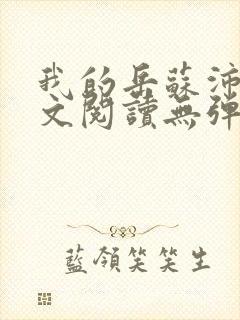 我的岳蘇沛
文閱讀無彈
藍領笑笑生